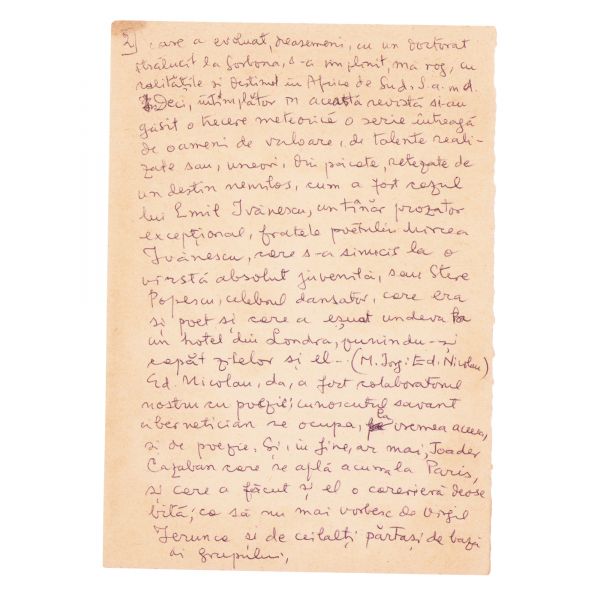 2) care a evoluat, deasemeni, cu un doctorat
strălucit la Sorbona, s-a implinit, mă rog, cu
calitățile și destinul în Africa de Sud, ș.a.m.d.
Deci, întîmplător în această revistă și-au
găsit o trecere meteorică o serie întreagă
de oameni de valoare, de talente reali-
zate sau, uneori, din păcate, retezate de
un destin nemilos, cum a fost cazul
lui Emil Ivănescu, un tînăr prozator
excepțional, fratele poetului Mircea
Ivănescu, care s-a sinucis la o
vîrstă absolut juvenilă, sau Stere
Popescu, celebrul dansator, care era
și poet și care a eșuat undeva la
un hotel din Londra, punîndu-și
capăt zilelor și el – (M. Iorg: Ed. Nicolau)
Ed. Nicolau, da, a fost colaboratorul
nostru cu poezie; cunoscutul savant
cibernetician se ocupa, la vremea aceea,
și de poezie. Și, in fine, ar mai, Toader
Cazaban care se află acum la Paris,
și care a făcut și el o carieră deose
bită; ca să nu mai vorbesc de Virgil
Ierunca și de ceilalți părtași de bază
ai grupului,